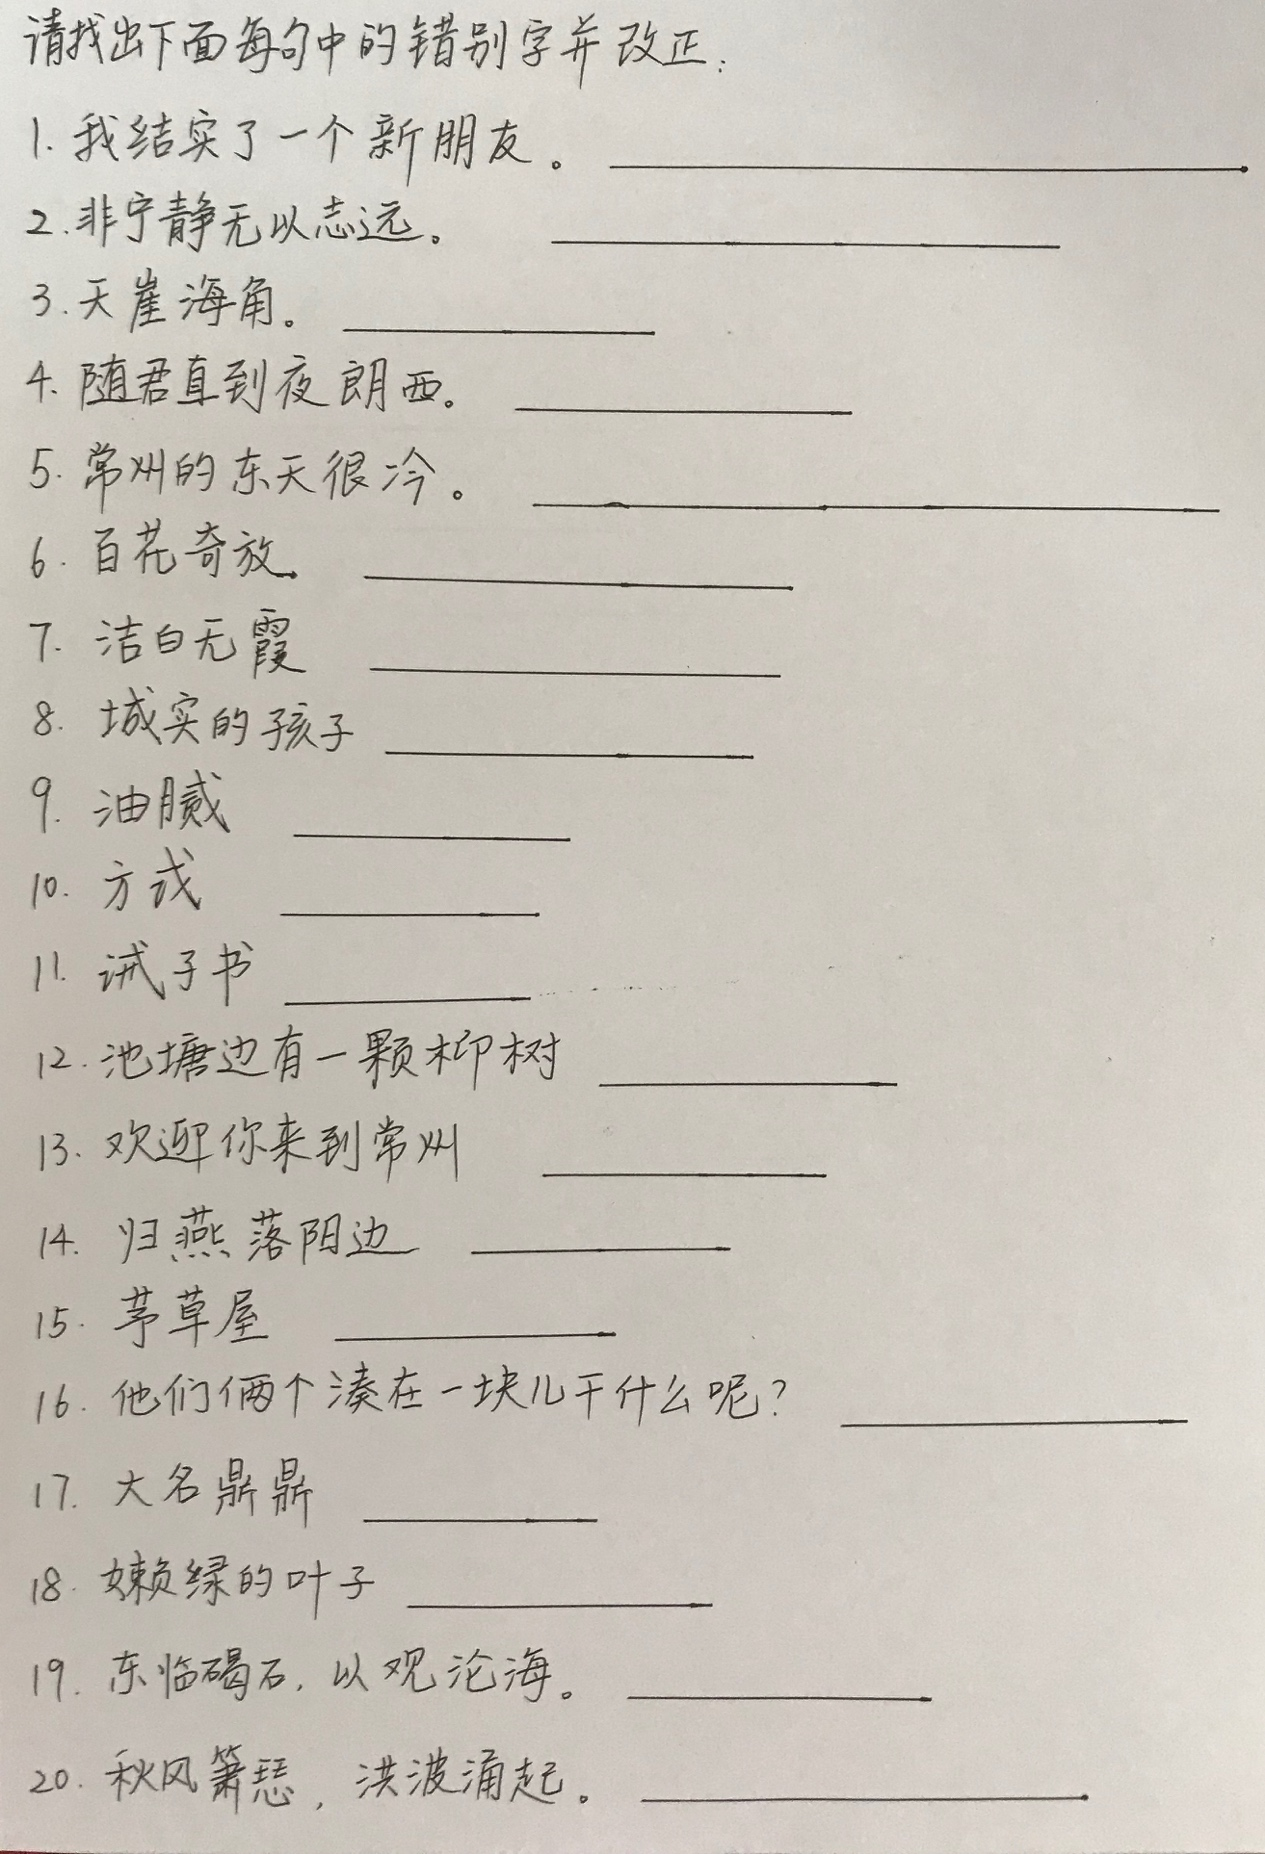 请找出下面每句中的错别字并改正：
1. 我结实了一个新朋友。
2. 非宁静无以志远。
3. 天崖海角。
4. 随君直到夜朗西。
5. 常州的东天很冷。
6. 百花奇放.
7. 洁白无霞
8. 城实的孩子
9. 油腻
10. 方式
11. 诫子书
12. 池塘边有一颗柳树
13. 欢迎你来到常州
14. 归燕落阳边
15. 茅草屋
16. 他们俩个凑在一块儿干什么呢？
17. 大名鼎鼎
18. 嫩绿的叶子
19. 东临碣石，以观沦海。
20. 秋风箫瑟，洪波涌起。